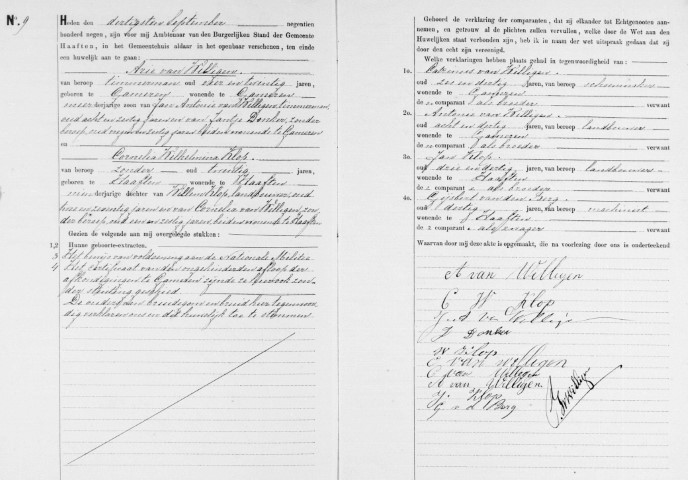 No. 9
Heden den dertigsten September negentien
honderd negen, zijn voor mij Ambtenaar van den Burgerlijken Stand der Gemeente
Haaften, in het Gemeentehuis aldaar in het openbaar verschenen, ten einde
een huwelijk aan te gaan:
Arie van Willigen
van beroep timmerman oud vier en twintig jaren,
geboren te Gameren wonende te Gameren
meerderjarige zoon van Jan Antonie van Willigen, timmerman,
oud acht en zestig jaren en van Jantje Donker, zonder
beroep, oud negen en zestig jaren beiden wonende te Gameren
en
Cornelia Wilhelmina Klop,
van beroep zonder oud twintig jaren,
geboren te Haaften wonende te Haaften
minderjarige dochter van Willem Klop, landbouwer, oud
en van Cornelia van Willigen, zon-
der beroep, oud en zestig jaren, beiden wonende te Haaften
Gezien de volgende aan mij overgelegde stukken:
1,2 Hunne geboorte-extracten.
3 Het bewijs van voldoening aan de Nationale Militie
4 Het certificaat van den onverhinderden afloop der
afkondigingen te Gameren zijnde ze hier ook zon-
der stuiting geschied.
De ouders van bruidegom en bruid hier tegenwoor-
dig verklaren ons in dit huwelijk toe te stemmen.
Gehoord de verklaring der comparanten, dat zij elkander tot Echtgenooten aan-
nemen, en getrouw al de plichten zullen vervullen, welke door de Wet aan den
Huwelijken staat verbonden zijn, heb ik in naam der wet uitspraak gedaan dat zij
door den echt zijn vereenigd.
Welke verklaringen hebben plaats gehad in tegenwoordigheid van:
1o. van Willigen
oud zes en dertig jaren, van beroep schoenmaker
wonende te Gameren verwant
de n comparant als broeder
2o. Antonie van Willigen
oud acht en dertig jaren, van beroep landbouwer
wonende te Gameren verwant
de n comparant als broeder
3o. Jan Klop
oud drie en dertig jaren, van beroep landbouwer
wonende te Haaften verwant
de comparant e als broeder
4o. Gijsbert van den Berg
oud dertig jaren, van beroep machinist
wonende te Haaften verwant
de comparant e als zwager
Waarvan door mij deze akte is opgemaakt, die na voorlezing door ons is onderteekend
A van Willigen
C W Klop
J. A van Willigen
J Donker
W Klop
C van Willigen
C van Willigen
A van Willigen
J. Klop
G v d Berg